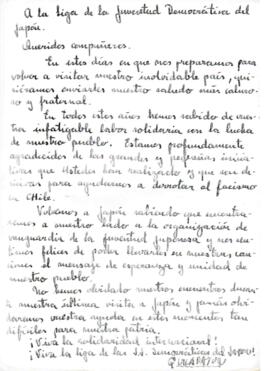 A la Liga de la Juventud Democrática del
Japón.
Queridos compañeros.
En estos días en que nos preparamos para
volver a visitar vuestro inolvidable país, qui-
siéramos enviarles nuestro saludo más caluro-
so y fraternal.
En todos estos años hemos sabido de vues-
tra infatigable labor solidaria con la lucha
de nuestro pueblo. Estamos profundamente
agradecidos de las grandes y pequeñas inicia-
tivas que Ustedes han realizado y que son de-
cisivas para ayudarnos a derrotar al fascismo
en Chile.
Volvemos a Japón sabiendo que encontra-
remos a nuestro lado a la organización de
vanguardia de la juventud japonesa y nos sen-
timos felices de poder llevarles en nuestras can-
ciones el mensaje de esperanza y unidad de
nuestro pueblo.
No hemos olvidado nuestros encuentros duran-
te nuestra última visita a Japón y jamás olvi-
daremos vuestra ayuda en estos momentos tan
difíciles para nuestra patria.
¡Viva la solidaridad internacional!
¡Viva la Liga de las J.J. Democráticas del Japón!